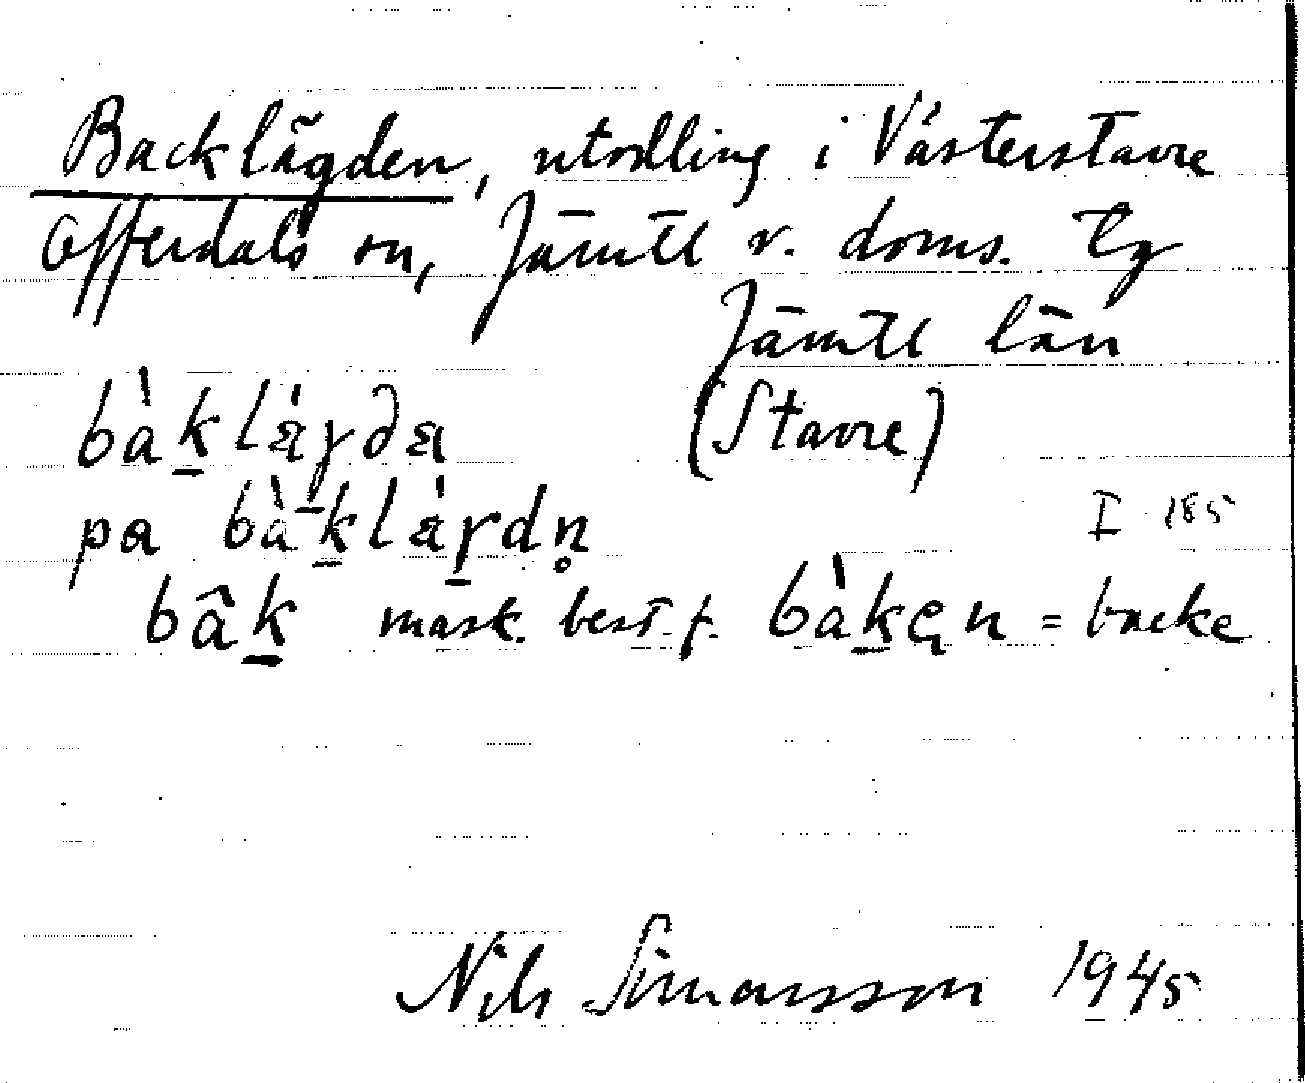 Backlägden, utodling i Västerstavre
Offerdals sn, Jämtl v. doms. lg
Jämtl län
bàk̠lὰγ̠də (Stavre)
pa bàk̠lὰγ̠dn̥ I 185
bâk̠ mask. best. f. bàk̠ęn = backe
Nils Simonsson 1945